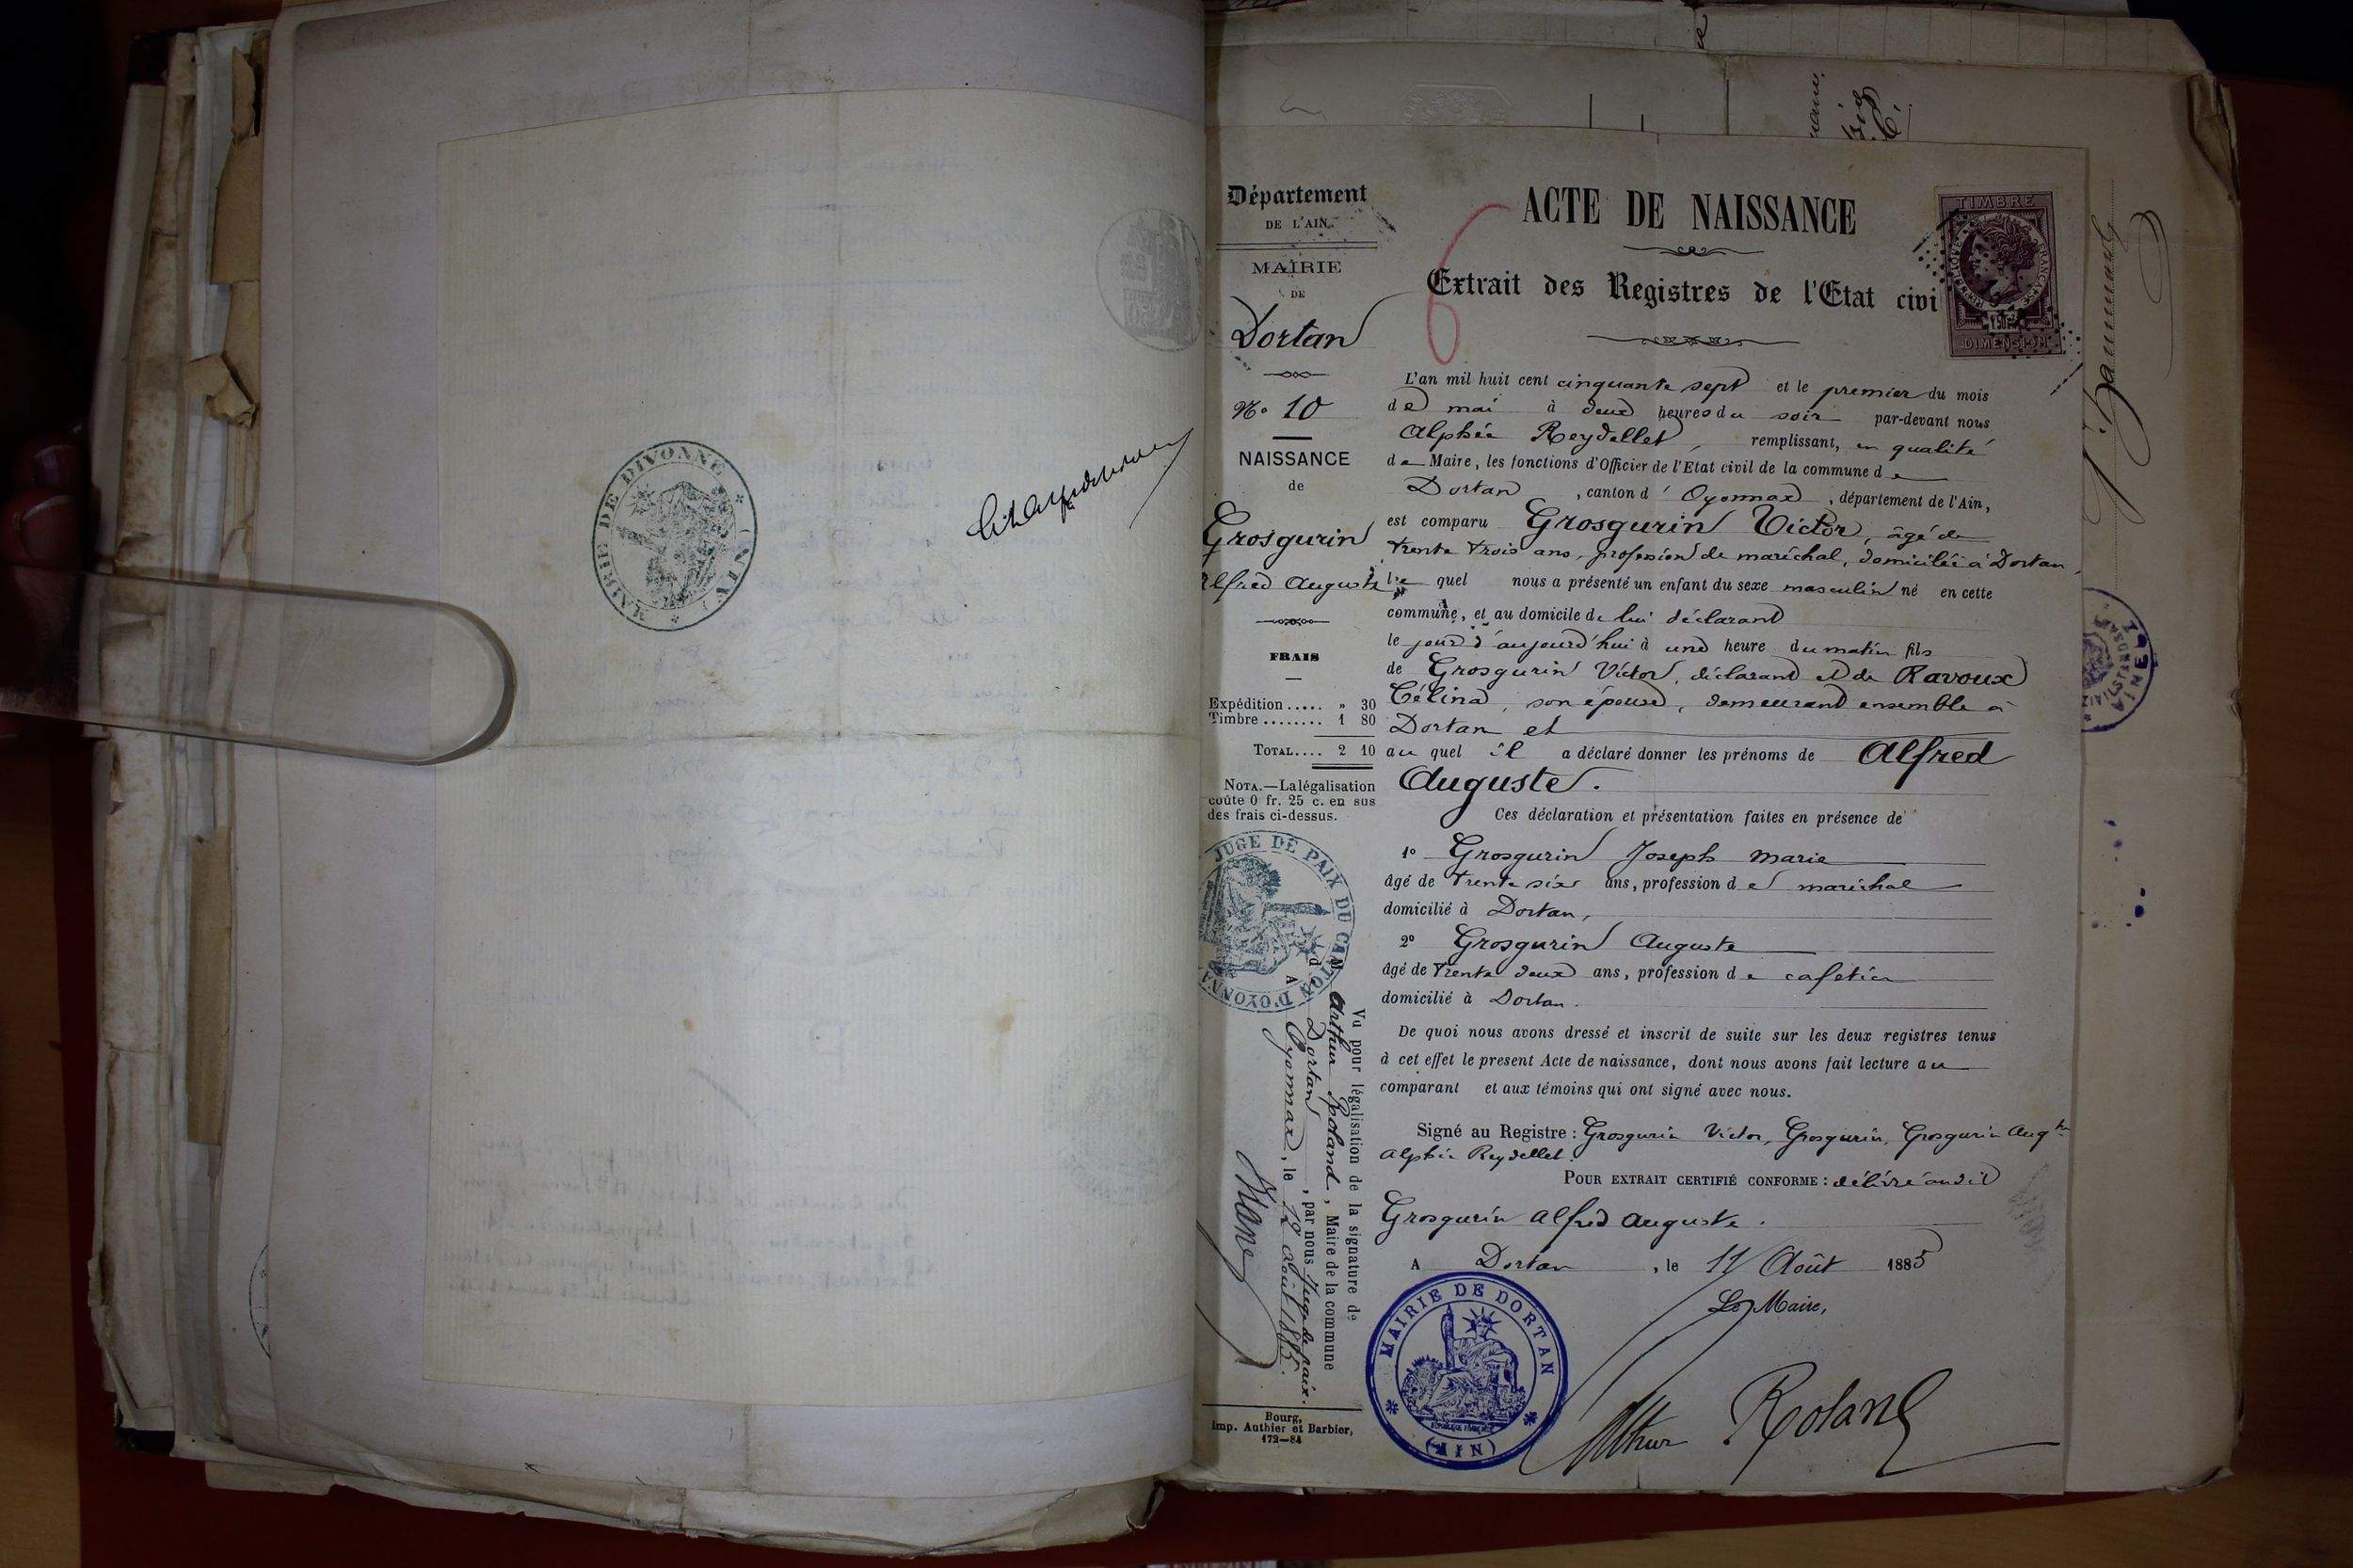 MAIRIE DE DIVONNE
(AIN)
Département
DE L'AIN
MAIRIE
DE
Dortan
N° 10
NAISSANCE
de
Grosgurin
Alfred Auguste
FRAIS
Expédition ..... » 30
Timbre ........ 1 80
TOTAL.... 2 10
NOTA.—La légalisation
coûte 0 fr. 25 c. en sus
des frais ci-dessus.
JUGE DE PAIX DU CANTON D'OYONNA
Vu pour légalisation de la signature de
M Arthur Roland, Maire de la commune
d Dortan, par nous Juge de paix.
A Oyonnax, le 12 août 1885.
Bourg,
imp. Authier et Barbier,
172—84
ACTE DE NAISSANCE
Extrait des Registres de l'Etat civi
TIMBRE
DIMENSION
L'an mil huit cent cinquante sept et le premier du mois
de mai à deux heures du soir par-devant nous
Alphée Reydellet, remplissant, en qualité
de Maire, les fonctions d'Officier de l'Etat civil de la commune de
Dortan, canton d'Oyonnax, département de l'Ain,
est comparu Grosgurin Victor, âgé de
trente trois ans, profession de maréchal, domicilié à Dortan,
lequel nous a présenté un enfant du sexe masculin né en cette
commune, et au domicile de lui déclarant
le jour d'aujourd'hui à une heure du matin fils
de Grosgurin Victor, déclarant et de Ravoux
Célina, son épouse, demeurant ensemble à
Dortan et
auquel il a déclaré donner les prénoms de Alfred
Auguste.
Ces déclaration et présentation faites en présence de
1° Grosgurin Joseph Marie
âgé de trente six ans, profession de maréchal
domicilié à Dortan,
2° Grosgurin Auguste
âgé de trente deux ans, profession de cafetier
domicilié à Dortan.
De quoi nous avons dressé et inscrit de suite sur les deux registres tenus
à cet effet le present Acte de naissance, dont nous avons fait lecture au
comparant et aux témoins qui ont signé avec nous.
Signé au Registre : Grosgurin Victor, Grosgurin, Grosgurin Aug<sup>te</sup>
Alphée Reydellet.
POUR EXTRAIT CERTIFIÉ CONFORME : délivré audit
Grosgurin Alfred Auguste.
A Dortan, le 11 Août 1885
Le Maire,
Arthur Roland
MAIRIE DE DORTAN
(AIN)